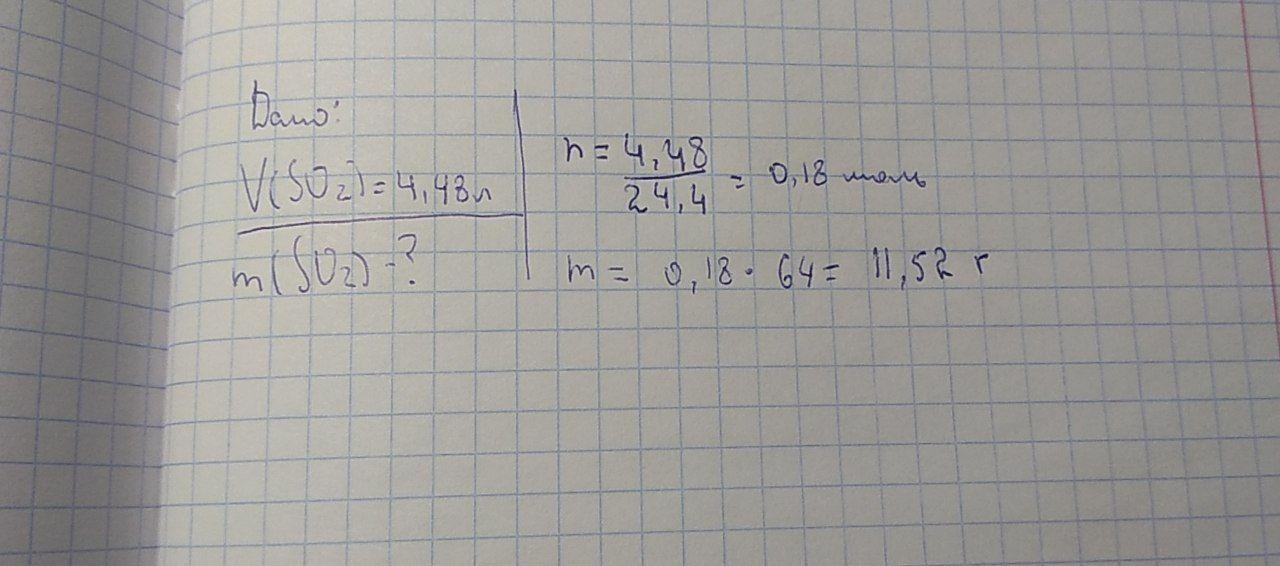 Дано:
V(SO₂) = 4,48 л
m(SO₂) - ?
n = 4,48 / 24,4 = 0,18 моль
m = 0,18 · 64 = 11,52 г